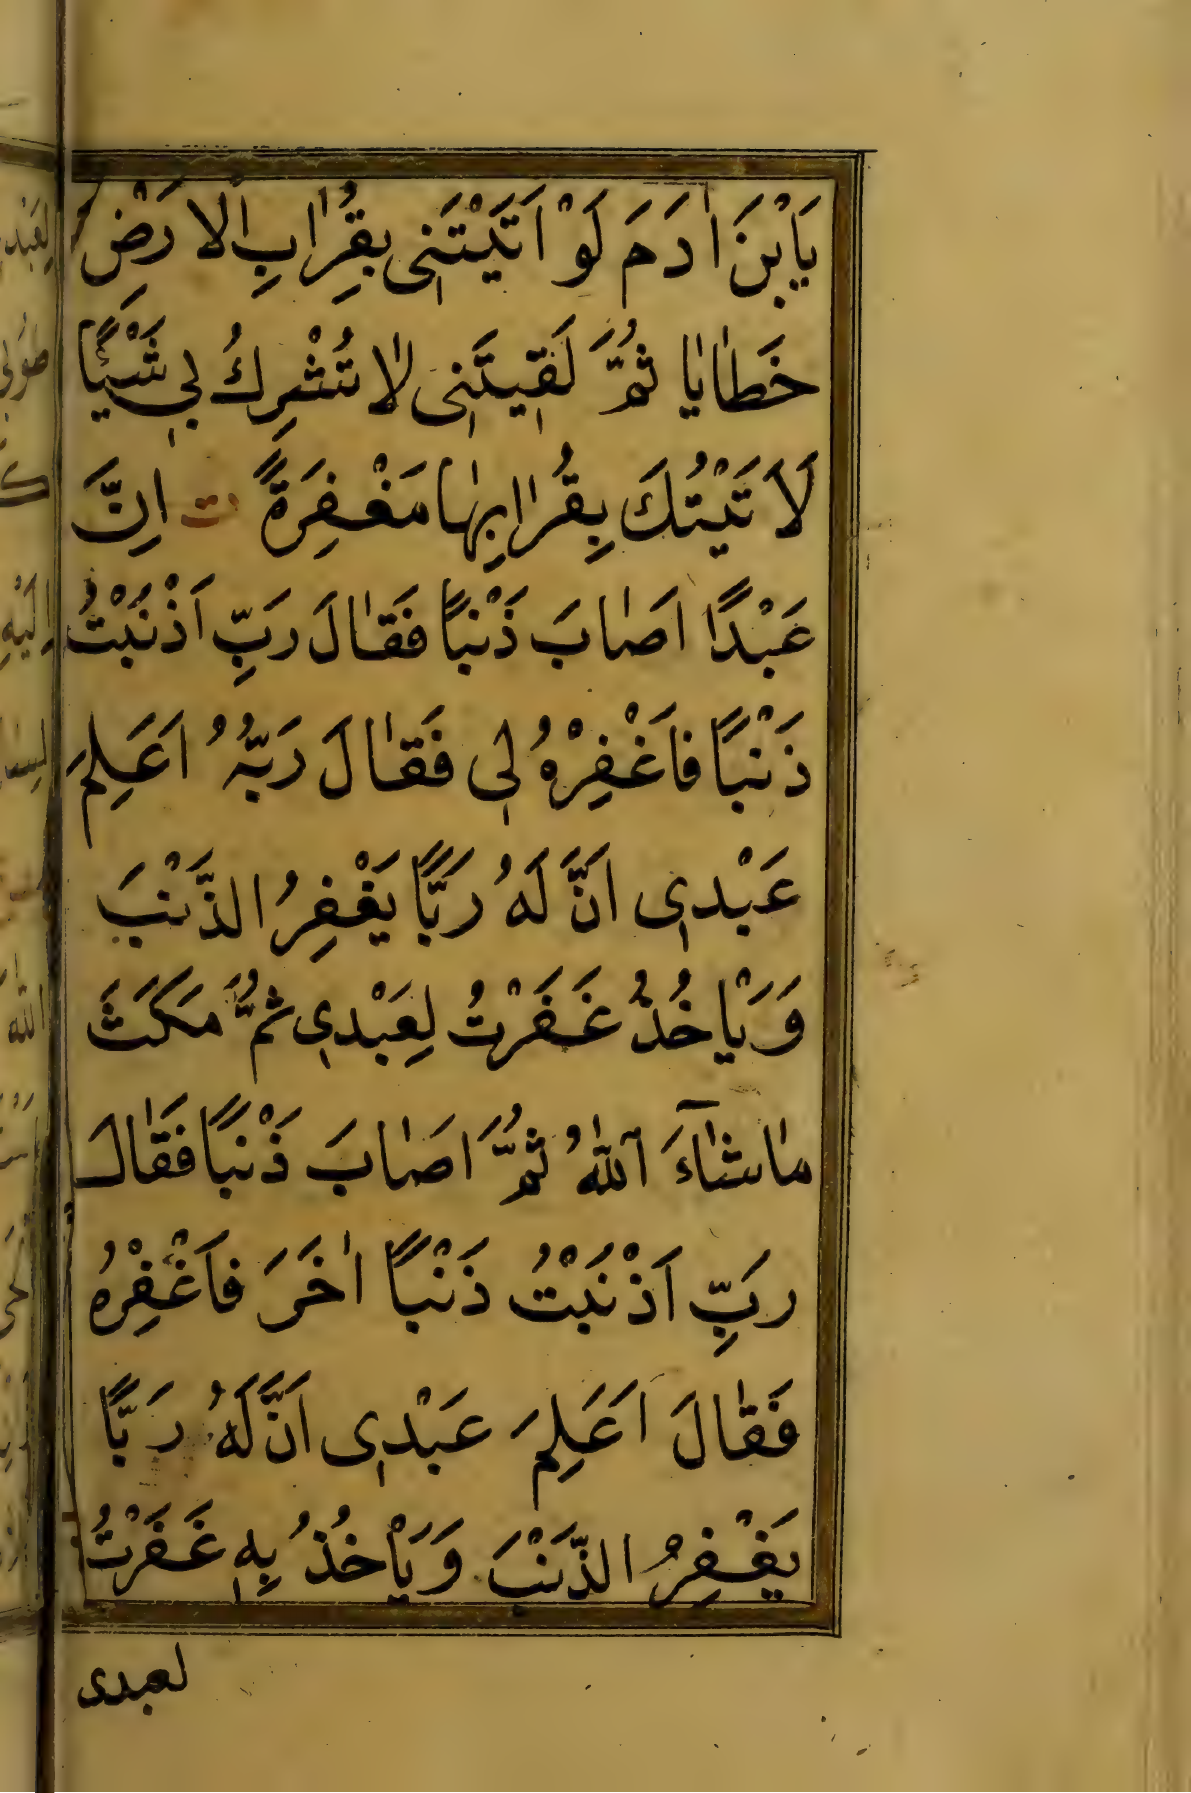 يَابْنَ اٰدَمَ لَوْ اَتَيْتَنٖى بِقُرٰابِ الْاَرَضْ
خَطٰايٰا ثُمَّ لَقٖيتَنٖى لٰا تُشْرِكُ بٖى شَيْئًا
لَاَتَيْتُكَ بِقُرٰابِهٰا مَغْفِرَةً ت اِنَّ
عَبْدًا اَصٰابَ ذَنْبًا فَقٰالَ رَبِّ اَذْنَبْتُ
ذَنْبًا فَاغْفِرْهُ لٖى فَقٰالَ رَبُّهُ اَعَلِمَ
عَبْدٖى اَنَّ لَهُ رَبًّا يَغْفِرُ الذَّنْبَ
وَيَاْخُذُ غَفَرْتُ لِعَبْدٖى ثُمَّ مَكَثَ
مٰا شٰاءَ اللّٰهُ ثُمَّ اَصٰابَ ذَنْبًا فَقٰالَ
رَبِّ اَذْنَبْتُ ذَنْبًا اٰخَرَ فَاغْفِرْهُ
فَقٰالَ اَعَلِمَ عَبْدٖى اَنَّ لَهُ رَبًّا
يَغْفِرُ الذَّنْبَ وَيَاْخُذُ بِهٖ غَفَرْتُ
لعبدى